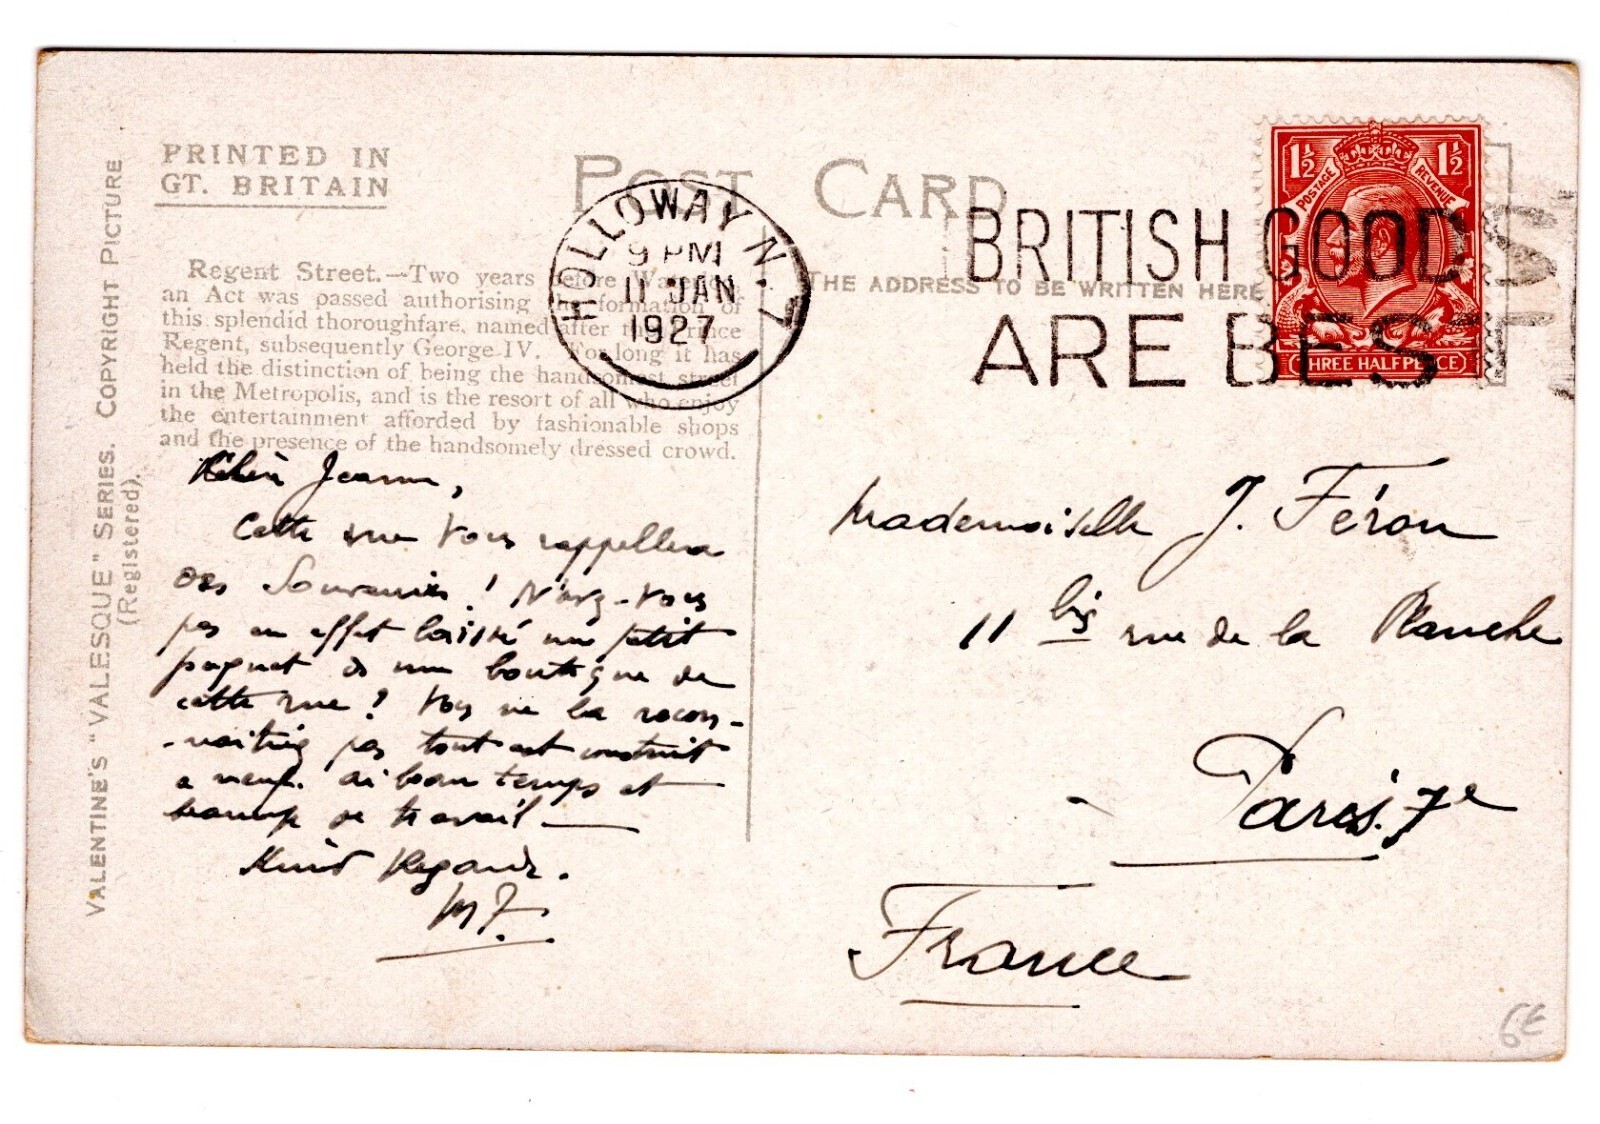 PRINTED IN
GT. BRITAIN
POST CARD
HOLLOWAY N.7
9 PM
11 JAN
1927
BRITISH GOODS
ARE BEST
1½ 1½
POSTAGE REVENUE
THREE HALFPENCE
THE ADDRESS TO BE WRITTEN HERE
VALENTINE'S "VALESQUE" SERIES. COPYRIGHT PICTURE
(Registered).
Regent Street.—Two years before Waterloo
an Act was passed authorising the formation of
this splendid thoroughfare, named after the Prince
Regent, subsequently George IV. For long it has
held the distinction of being the handsomest street
in the Metropolis, and is the resort of all who enjoy
the entertainment afforded by fashionable shops
and the presence of the handsomely dressed crowd.
Jeanne,
Cette rue vous rappellera
des souvenirs! N'avez-vous
pas en effet laissé un petit
paquet ds une boutique de
cette rue? Vous ne la recon-
-naitriez pas tout est construit
a neuf. ai beau temps et
beaucoup de travail —
Kind Regards.
MF.
Mademoiselle J. Féron
11 bis rue de la Planche
Paris. 7e
France
6€